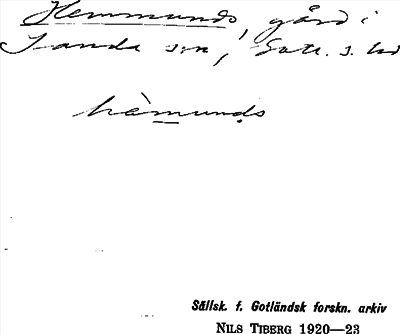 Hemmunds, gård i
Sanda sn, Gotl. s. hd
hä̀munds
Sällsk. f. Gotländsk forskn. arkiv
NILS TIBERG 1920—23